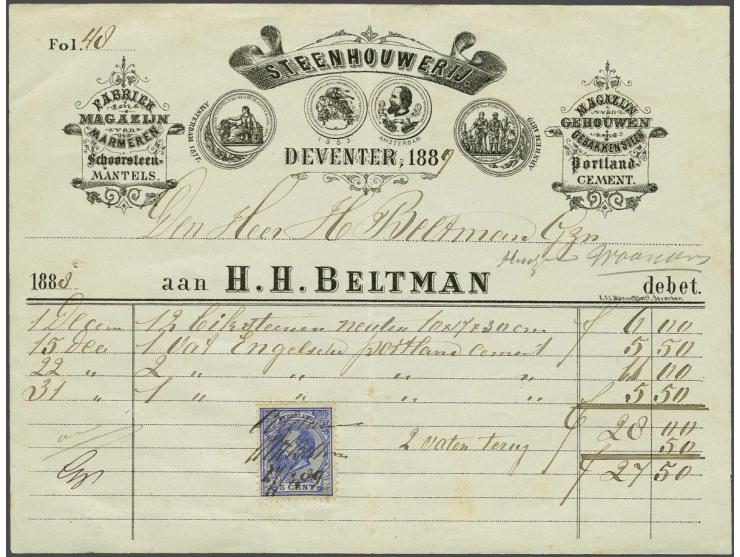 Fol. 48
STEENHOUWERIJ.
FABRIEK
MAGAZIJN
van
MARMEREN
Schoorsteen-
MANTELS.
AMSTERDAM 1877.
1883
AMSTERDAM
ARNHEM
MAGAZIJN
van
GEHOUWEN
GEBAKKEN STEEN
Portland-
CEMENT.
DEVENTER, 1889
Den Heer H Beltman Gzn
1888 aan H. H. BELTMAN debet.
1 Decem 12 steenen neuten 10x17x30cm f 6 00
15 Dec 1 vat Engelsche portland cement 5 50
22 " 2 " " " " 11 00
31 " 1 " " " " 5 50
f 28 00
2 vaten terug 50
f 27 50
5 CENT